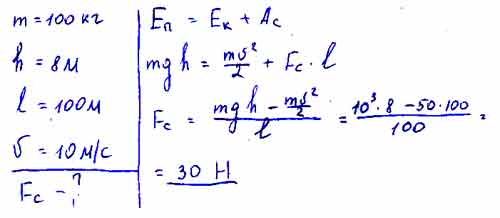 m = 100 кг
h = 8 м
l = 100 м
v = 10 м/с
Fc - ?
Eп = Eк + Ac
mgh = mv²/2 + Fc · l
Fc = (mgh - mv²/2)/l = (10³ · 8 - 50 · 100)/100 =
= 30 Н